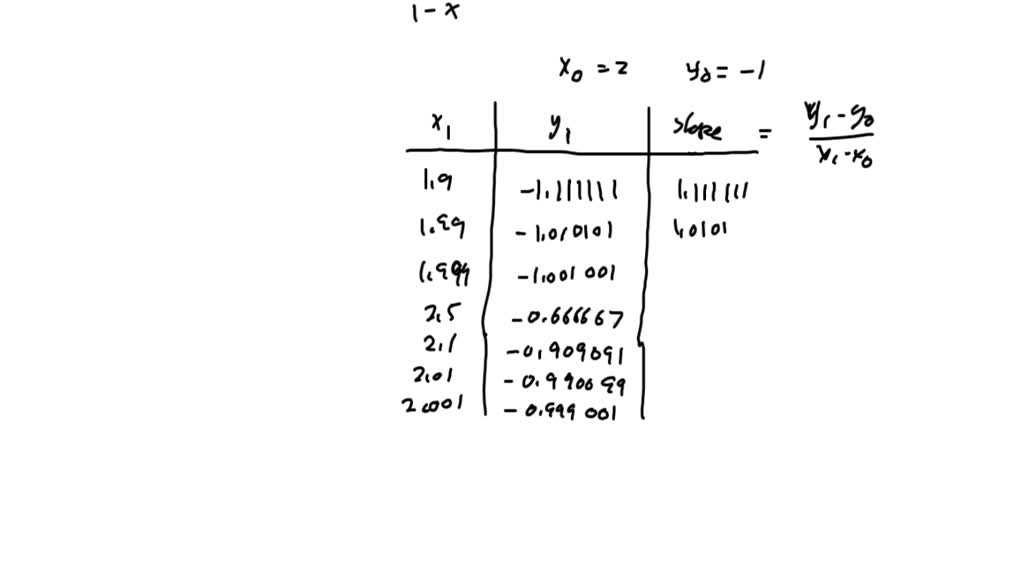 1 - x
x₀ = 2 y₀ = -1
x₁ y₁ slope = y₁ - y₀ / x₁ - x₀
1.9 -1.111111 1.111111
1.99 -1.010101 1.0101
1.999 -1.001001
2.5 -0.666667
2.1 -0.909091
2.01 -0.990099
2.0001 -0.999001